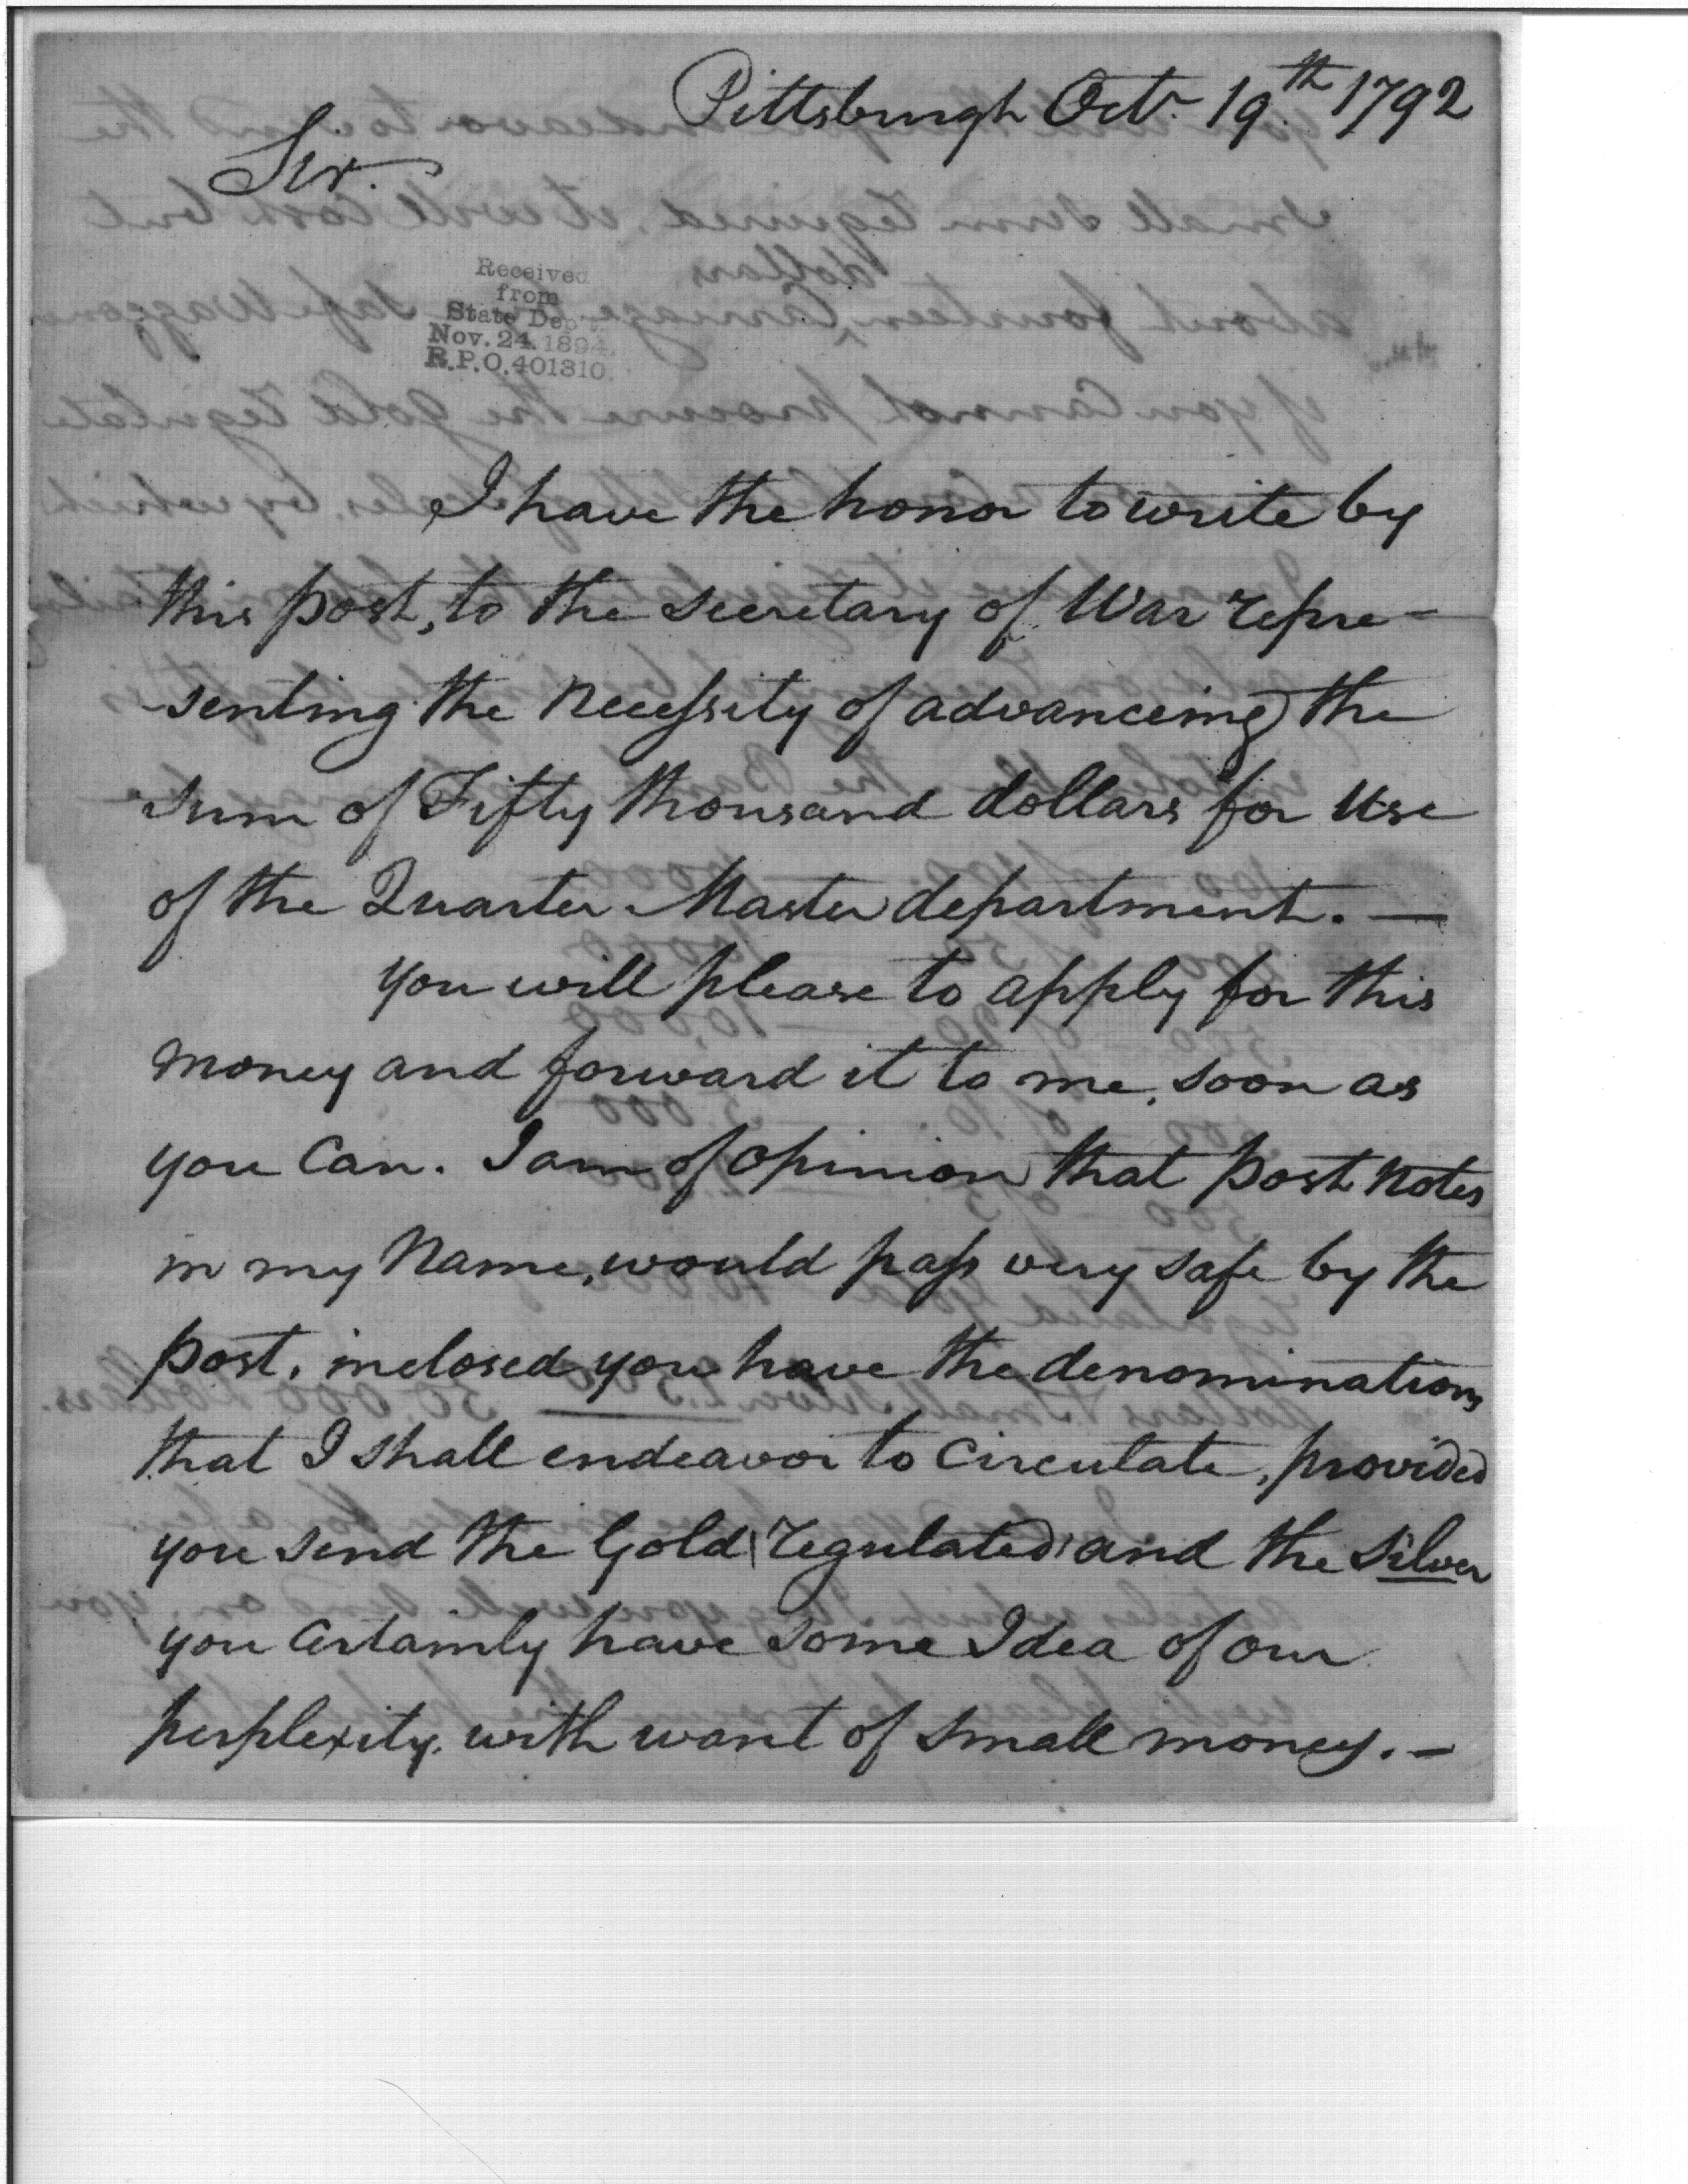 Pittsburgh Octr. 19th. 1792
Sir.
Received
from
State Dep't.
Nov. 24. 1894.
R.P.O. 401310.
I have the honor to write by
this post, to the secretary of War repre-
senting the Necessity of advanceing the
sum of Fifty thousand dollars for Use
of the Quarter Master department. —
you will please to apply for this
money and forward it to me, soon as
you Can. I am of opinion that post Notes
in my Name, would pass very safe by the
post, inclosed you have the denominations
that I shall endeavor to Circulate, provided
you send the Gold regulated and the Silver
you Certainly have some Idea of our
perplexity, with want of small money. —